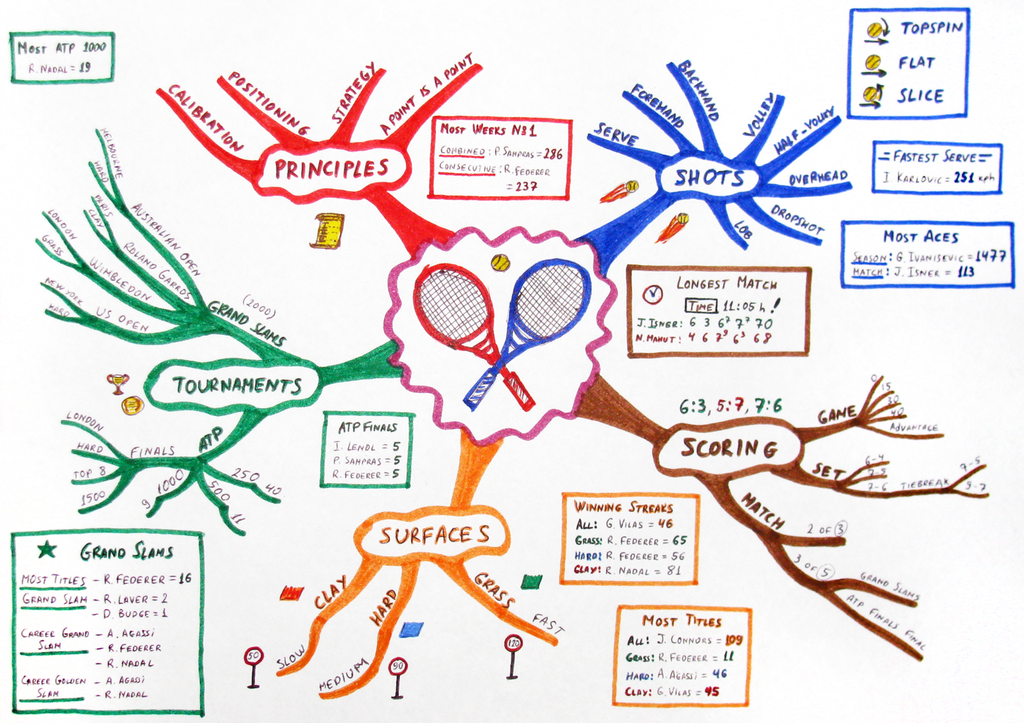 MOST ATP 1000
R. NADAL = 19
CALIBRATION
POSITIONING
STRATEGY
A POINT IS A POINT
PRINCIPLES
MOST WEEKS №1
COMBINED: P. SAMPRAS = 286
CONSECUTIVE: R. FEDERER
= 237
SERVE
FOREHAND
BACKHAND
VOLLEY
HALF-VOLLEY
OVERHEAD
DROPSHOT
LOB
SHOTS
TOPSPIN
FLAT
SLICE
=FASTEST SERVE=
I. KARLOVIC = 251 kph
MOST ACES
SEASON: G. IVANISEVIC = 1477
MATCH: J. ISNER = 113
LONGEST MATCH
TIME 11:05 h!
J. ISNER: 6 3 6⁷ 7⁷ 70
N. MAHUT: 4 6 7⁹ 6³ 68
MELBOURNE
HARD
AUSTRALIAN OPEN
PARIS
CLAY
ROLAND GARROS
LONDON
GRASS
WIMBLEDON
NEW YORK
HARD
US OPEN
GRAND SLAMS
(2000)
TOURNAMENTS
ATP
FINALS
LONDON
HARD
TOP 8
1500
9 1000
500 11
250 40
ATP FINALS
I. LENDL = 5
P. SAMPRAS = 5
R. FEDERER = 5
6:3, 5:7, 7:6
SCORING
GAME
0
15
30
40
ADVANTAGE
SET
6-4
7-5
7-6
TIEBREAK
7-5
9-7
MATCH
2 OF 3
3 OF 5
GRAND SLAMS
ATP FINALS FINAL
SURFACES
CLAY
SLOW
HARD
MEDIUM
GRASS
FAST
50
90
120
WINNING STREAKS
ALL: G. VILAS = 46
GRASS: R. FEDERER = 65
HARD: R. FEDERER = 56
CLAY: R. NADAL = 81
MOST TITLES
ALL: J. CONNORS = 109
GRASS: R. FEDERER = 11
HARD: A. AGASSI = 46
CLAY: G. VILAS = 45
GRAND SLAMS
MOST TITLES – R. FEDERER = 16
GRAND SLAM – R. LAVER = 2
– D. BUDGE = 1
CAREER GRAND – A. AGASSI
SLAM – R. FEDERER
– R. NADAL
CAREER GOLDEN – A. AGASSI
SLAM – R. NADAL